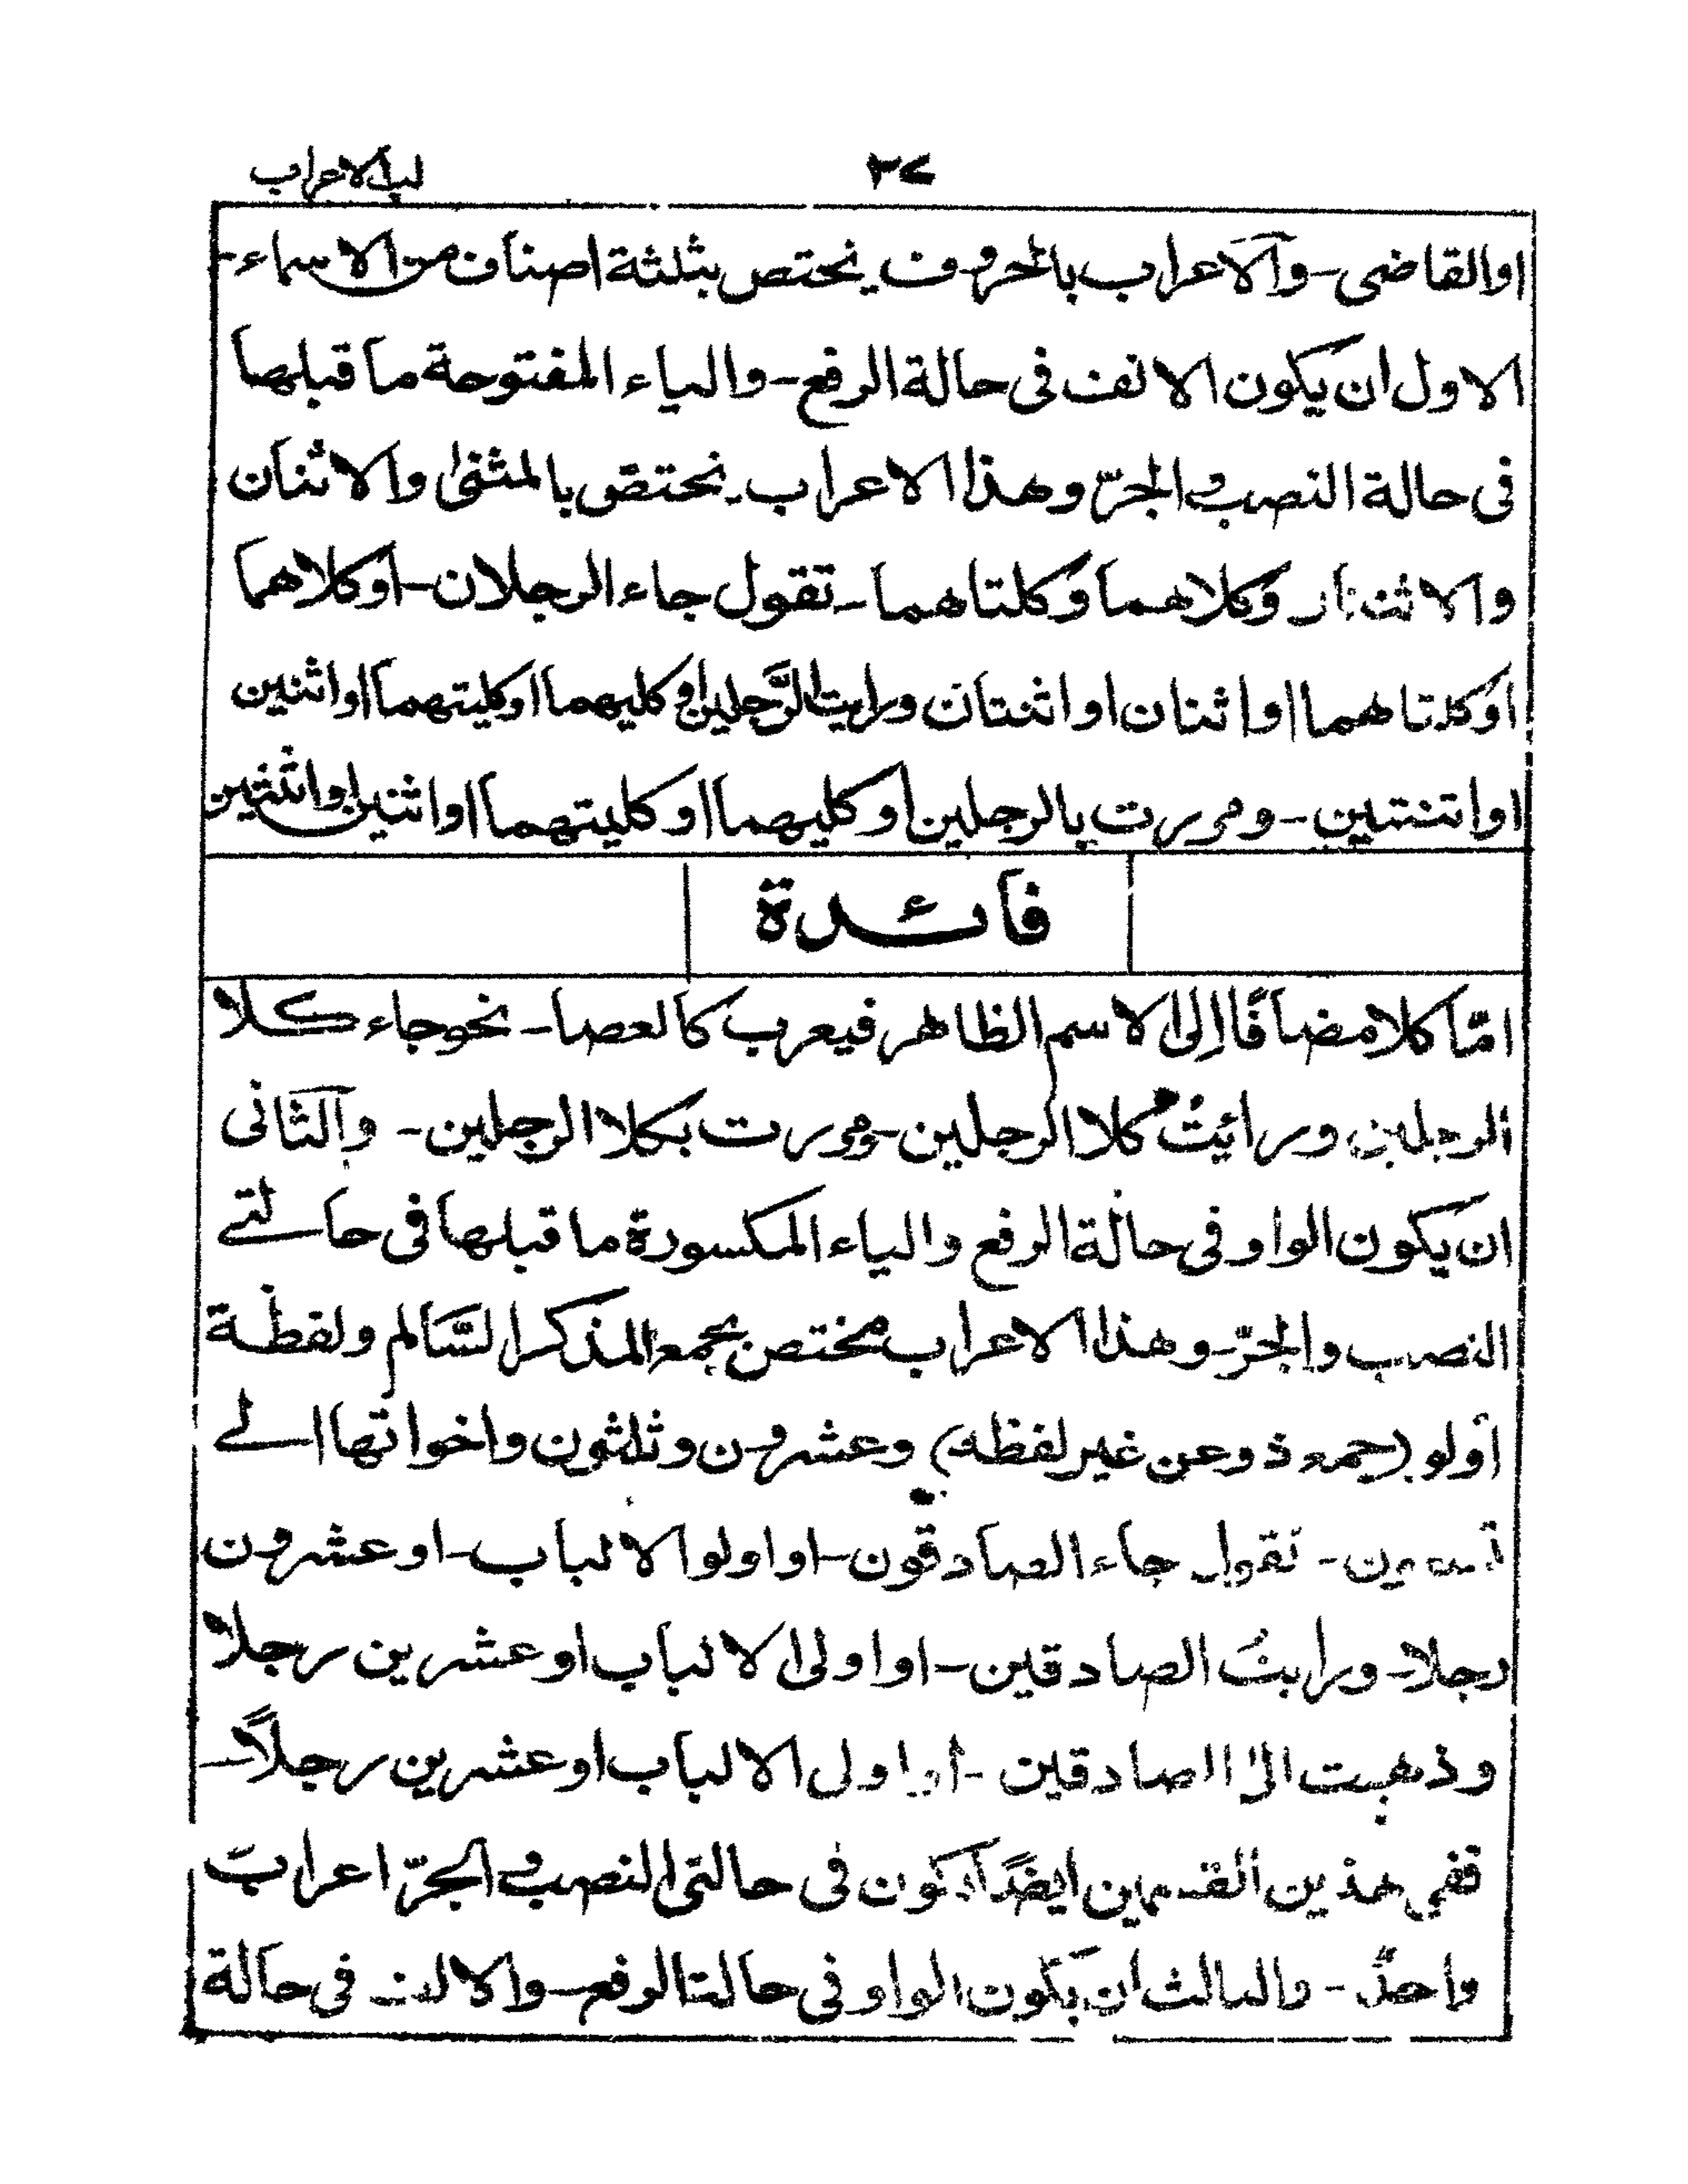 لب الاعراب
٣٧
او القاضى - والاعراب بالحروف يختص بثلثة اصناف من الاسماء -
الاول ان يكون الالف فى حالة الرفع - والياء المفتوحة ما قبلها
فى حالة النصب والجرّ وهذا الاعراب يختصّ بالمثنى والاثنان
والاثنتان وكلاهما وكلتاهما - تقول جاء الرجلان - او كلاهما
او كلتاهما او اثنان او اثنتان ورايت الرَّجلين او كليهما او كليتهما او اثنين
او اثنتين - ومررت بالرجلين او كليهما او كليتهما او اثنين او اثنتين
فائدة
امّا كلا مضافًا اِلى الاسم الظاهر فيعرب كالعصا - نحو جاء كلا
الرجلين ورائيتُ كلا الرجلين - ومررت بكلا الرجلين - والثانى
ان يكون الواو فى حالة الرفع والياء المكسورة ما قبلها فى حالتے
النصب والجرّ - وهذا الاعراب مختص بجمع المذكر السَّالم ولفظة
أولو (جمع ذو عن غير لفظه) وعشرون وثلثون واخواتها الے
تسعون - تقول جاء الصادقون - او اولوا الالباب - او عشرون
رجلا - ورايتُ الصادقين - او اولى الالباب او عشرين رجلا
وذهبت الىٰ الصادقين - او اولى الالباب او عشرين رجلاً -
ففي هذين القسمين ايضًا يكون فى حالتى النصب والجرّ اعراب
واحدٌ - والثالث ان يكون الواو فى حالة الرفع - والالف فى حالة